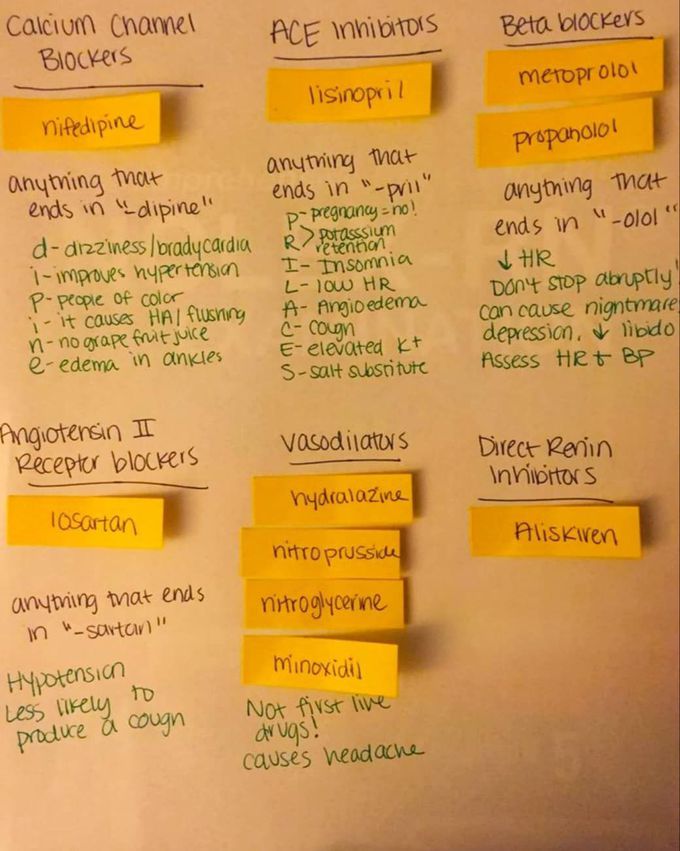 Calcium Channel
Blockers
nifedipine
anything that
ends in "-dipine"
d- dizziness/bradycardia
i- improves hypertension
P- people of color
i- it causes HA/ flushing
n- no grapefruit juice
e- edema in ankles
ACE inhibitors
lisinopril
anything that
ends in "-pril"
P- pregnancy = no!
R > potasssium
retention
I- Insomnia
L- low HR
A- Angioedema
C- cough
E- elevated K+
S- salt substitute
Beta blockers
metoprolol
propanolol
anything that
ends in "-olol"
↓ HR
Don't stop abruptly!
can cause nightmare,
depression, ↓ libido
Assess HR + BP
Angiotensin II
Receptor blockers
losartan
anything that ends
in "-sartan"
Hypotension
Less likely to
produce a cough
Vasodilators
hydralazine
nitroprusside
nitroglycerine
minoxidil
Not first line
drugs!
causes headache
Direct Renin
Inhibitors
Aliskiren